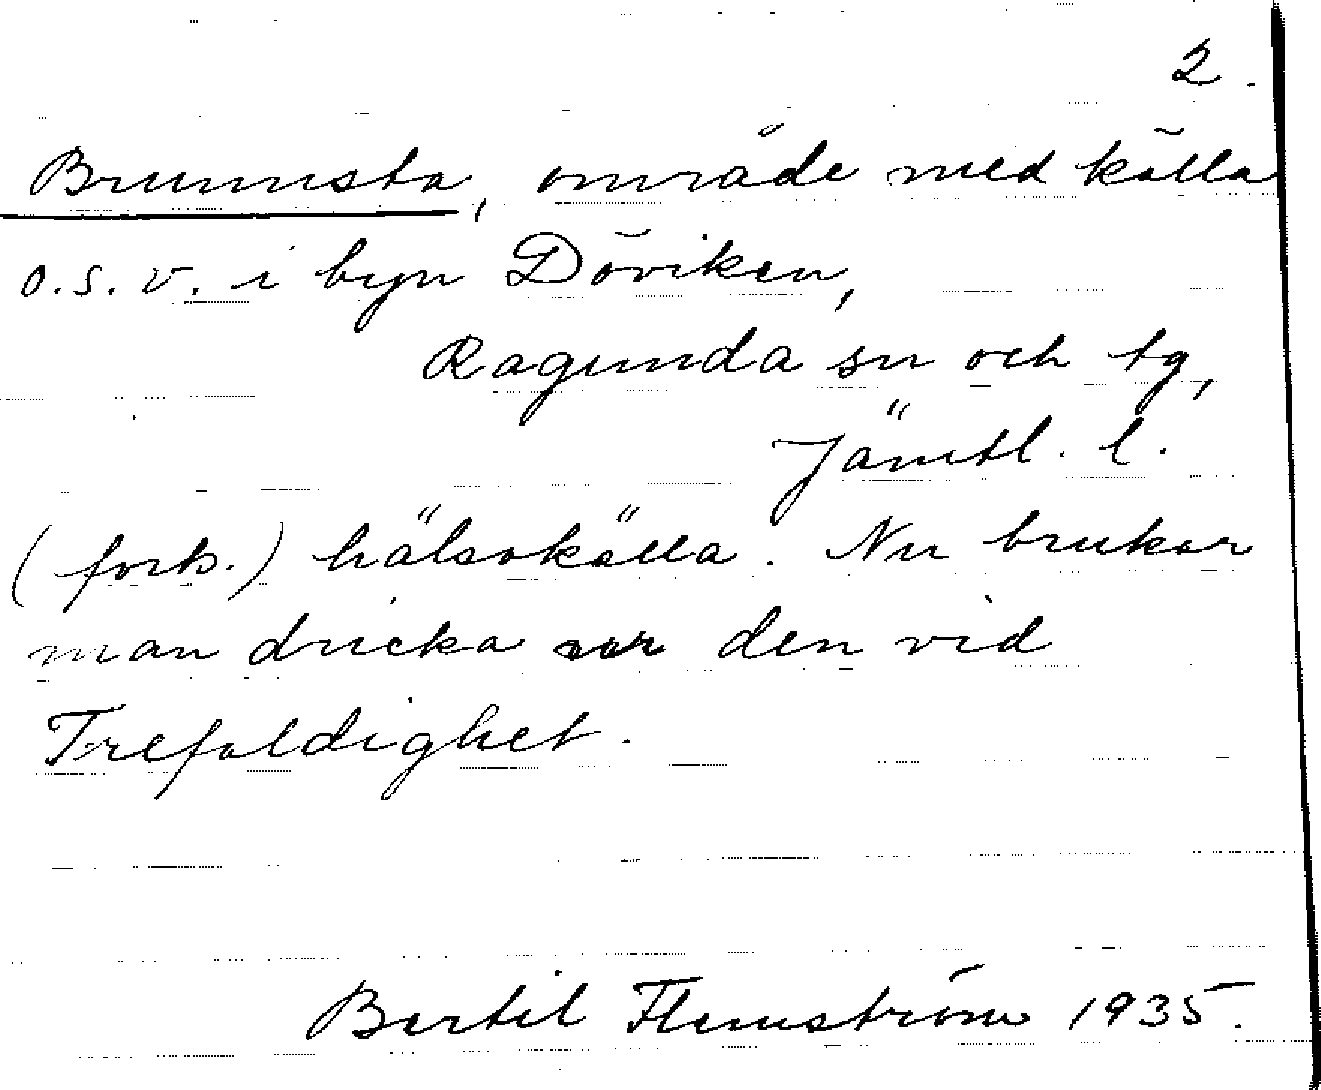 2.
Brunnsta, område med källa
o.s.v. i byn Döviken,
Ragunda sn och tg,
Jämtl. l.
(forts.) hälsokälla. Nu brukar
man dricka ur den vid
Trefaldighet.
Bertil Flemström 1935.